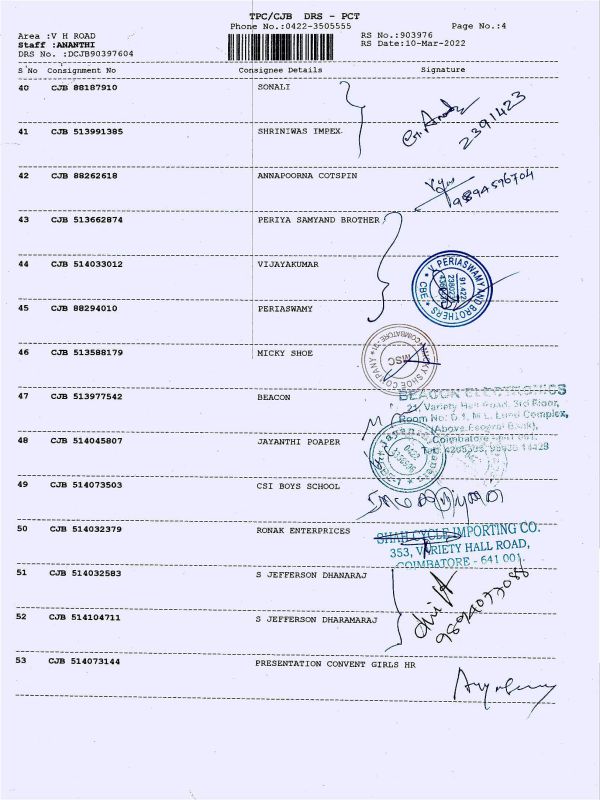 TPC/CJB DRS - PCT
Phone No.:0422-3505555
Page No.:4
Area :V H ROAD
Staff :ANANTHI
DRS No. :DCJB90397604
RS No.:903976
RS Date:10-Mar-2022
S No Consignment No Consignee Details Signature
40 CJB 88187910 SONALI
2391423
41 CJB 513991385 SHRINIWAS IMPEX
42 CJB 88262618 ANNAPOORNA COTSPIN
9894596704
43 CJB 513662874 PERIYA SAMYAND BROTHER
44 CJB 514033012 VIJAYAKUMAR
V. PERIASWAMY AND BROTHERS
CBE
45 CJB 88294010 PERIASWAMY
46 CJB 513588179 MICKY SHOE
MICKY SHOE COMPANY
COIMBATORE
MSC
47 CJB 513977542 BEACON
BEACON ELECTRONICS
21, Variety Hall Road, 3rd Floor,
Room No: D.1, Complex,
(Above Bank),
Coimbatore - 641 001.
48 CJB 514045807 JAYANTHI POAPER
49 CJB 514073503 CSI BOYS SCHOOL
50 CJB 514032379 RONAK ENTERPRICES
SHAH CYCLE IMPORTING CO.
353, VARIETY HALL ROAD,
COIMBATORE - 641 001.
51 CJB 514032583 S JEFFERSON DHANARAJ
52 CJB 514104711 S JEFFERSON DHARAMARAJ
53 CJB 514073144 PRESENTATION CONVENT GIRLS HR